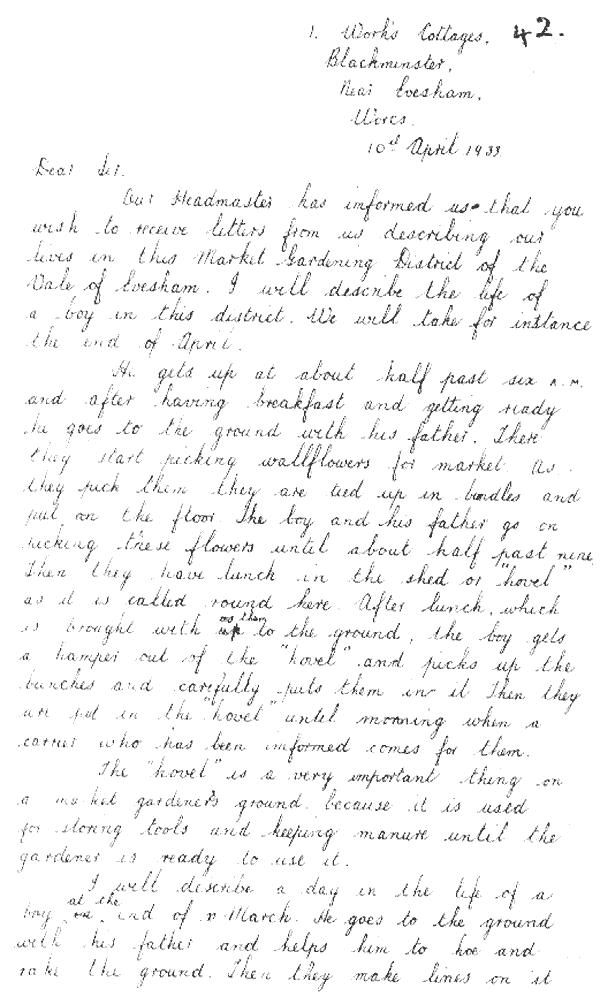 1. Work's Cottages, 42.
Blackminster,
Near Evesham,
Worcs.
10th April 1933
Dear Sir.
Our Headmaster has informed us that you
wish to receive letters from us describing our
lives in this Market Gardening District of the
Vale of Evesham. I will describe the life of
a boy in this district. We will take for instance
the end of April.
He gets up at about half past six A.M.
and after having breakfast and getting ready
he goes to the ground with his father. There
they start picking wallflowers for market. As
they pick them they are tied up in bundles and
put on the floor. The boy and his father go on
picking these flowers until about half past nine,
Then they have lunch in the shed or "hovel"
as it is called round here. After lunch, which
is brought with them to the ground, the boy gets
a hamper out of the "hovel" and picks up the
bunches and carefully puts them in it Then they
are put in the "hovel" until morning when a
carrier who has been informed comes for them.
The "hovel" is a very important thing on
a market gardener's ground because it is used
for storing tools and keeping manure until the
gardener is ready to use it.
I will describe a day in the life of a
boy at the end of March. He goes to the ground
with his father and helps him to hoe and
rake the ground. Then they make lines on it